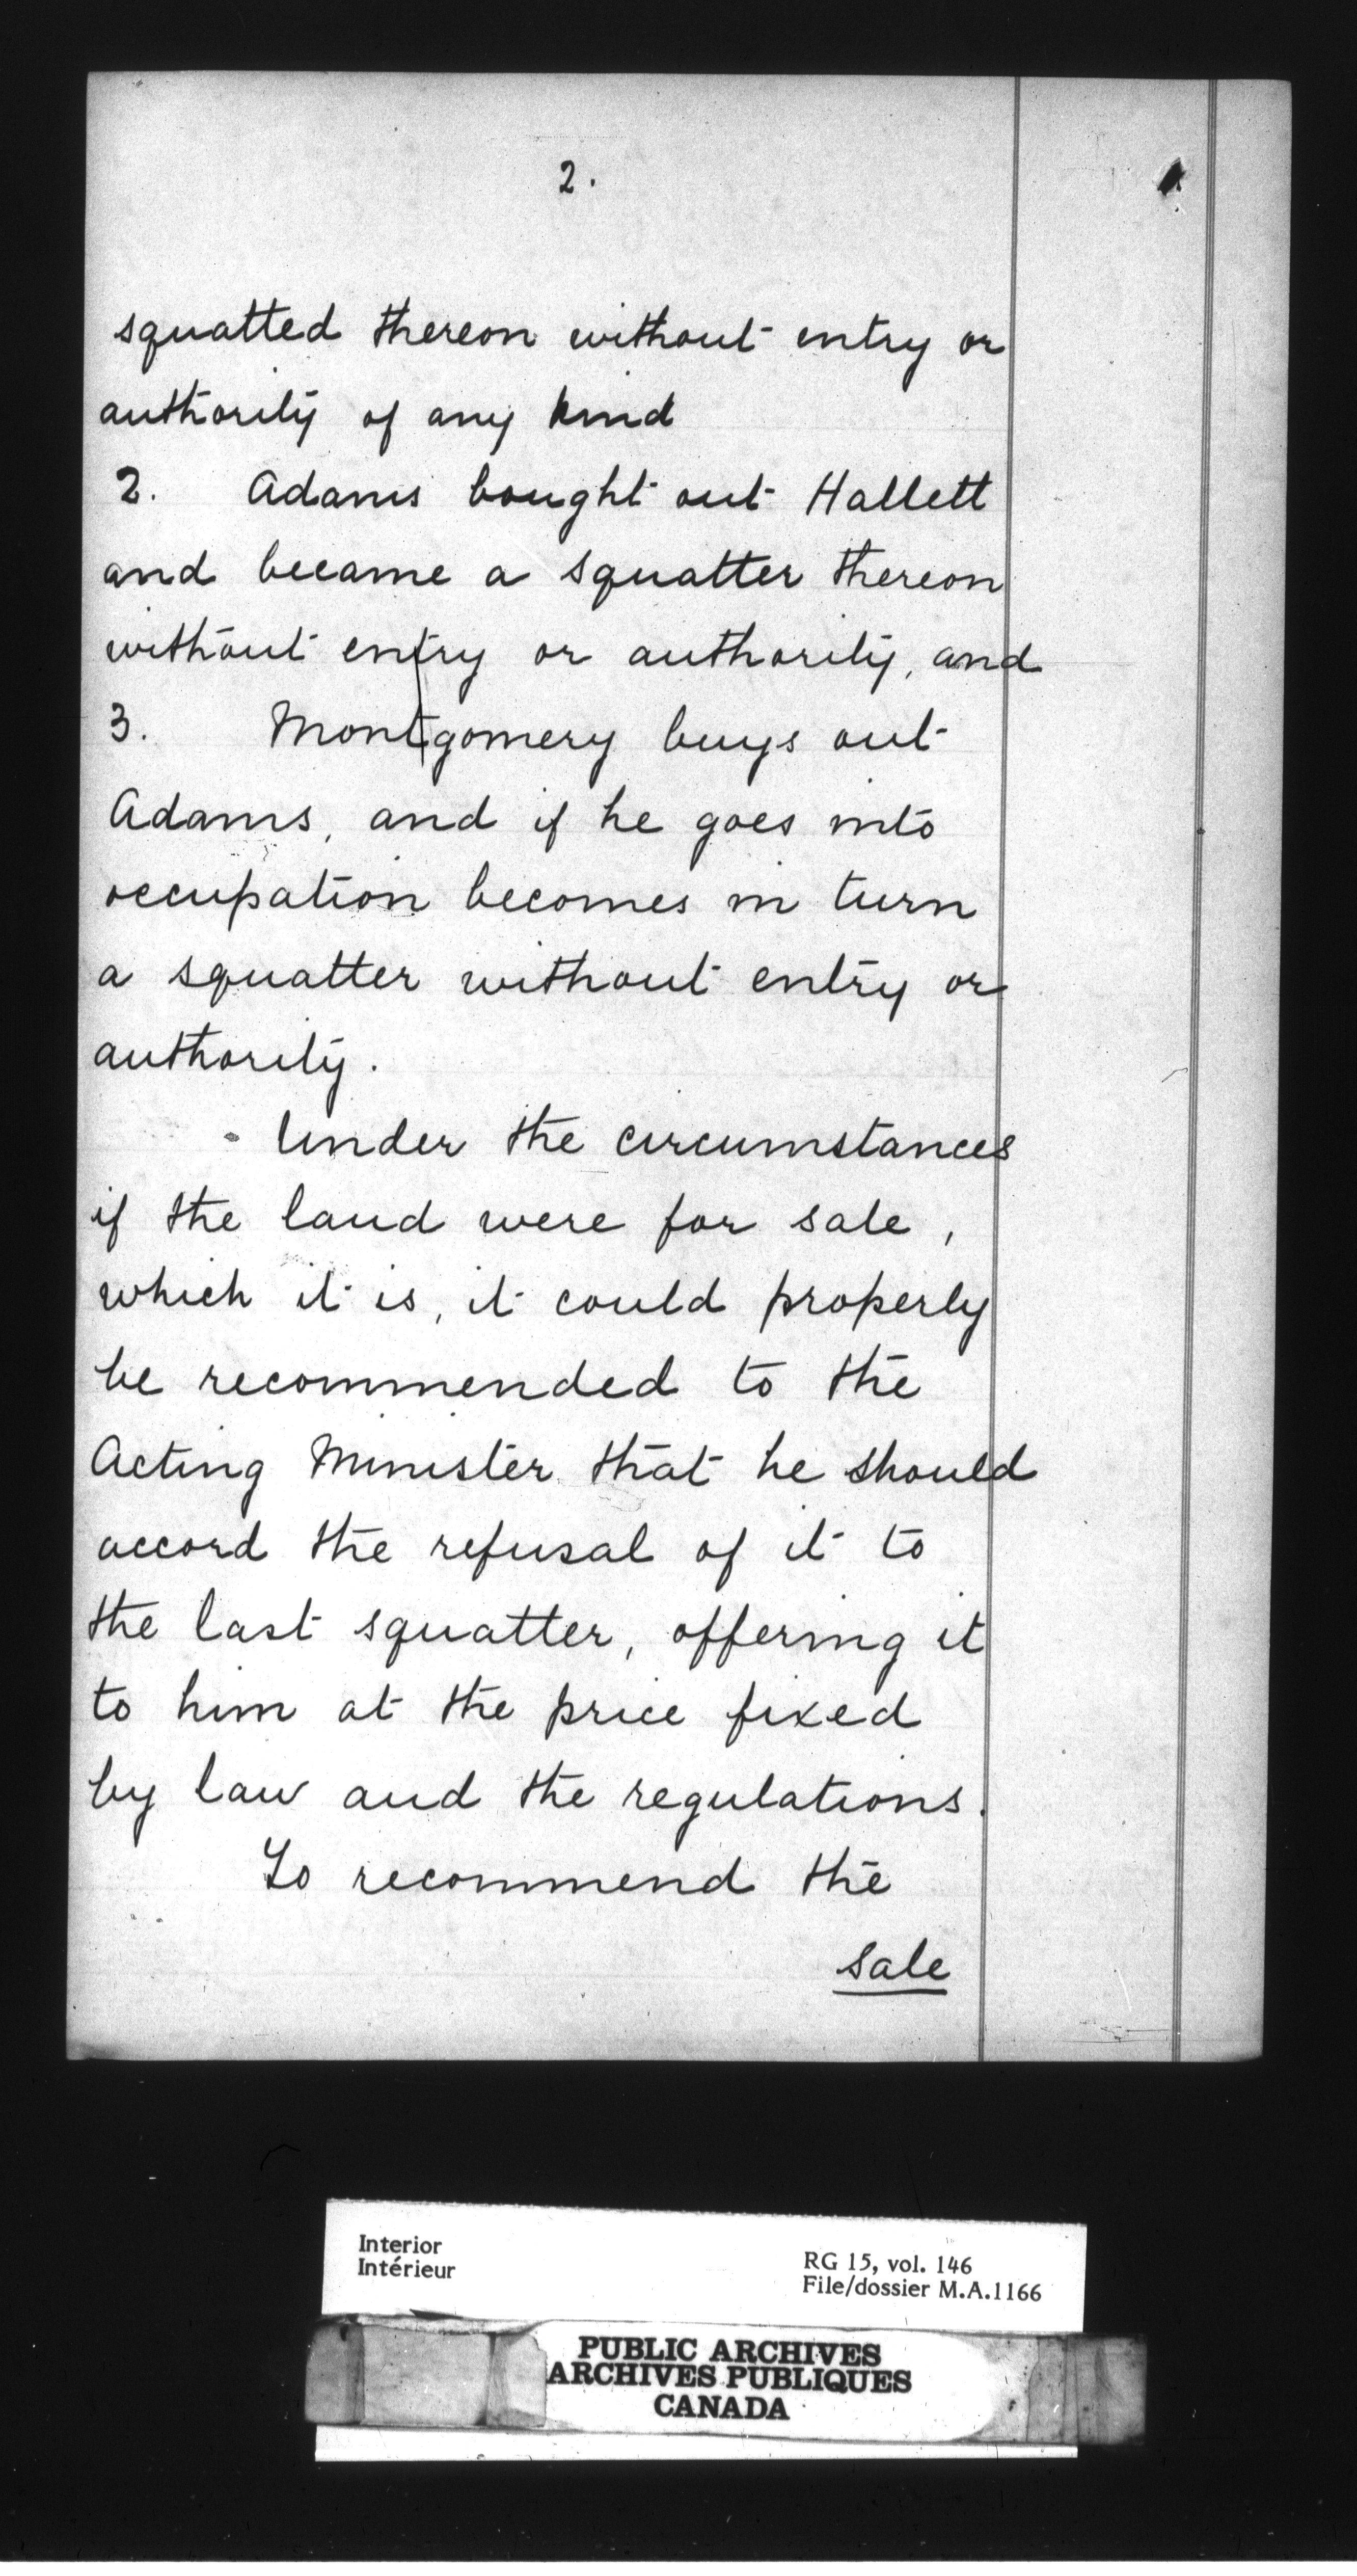 2.
squatted thereon without entry or
authority of any kind
2. Adams bought out Hallett
and became a squatter thereon
without entry or authority, and
3. Montgomery buys out
Adams, and if he goes into
occupation becomes in turn
a squatter without entry or
authority.
Under the circumstances
if the land were for sale,
which it is, it could properly
be recommended to the
Acting Minister that he should
accord the refusal of it to
the last squatter, offering it
to him at the price fixed
by law and the regulations.
To recommend the
sale
Interior
Intérieur
RG 15, vol. 146
File/dossier M.A.1166
PUBLIC ARCHIVES
ARCHIVES PUBLIQUES
CANADA